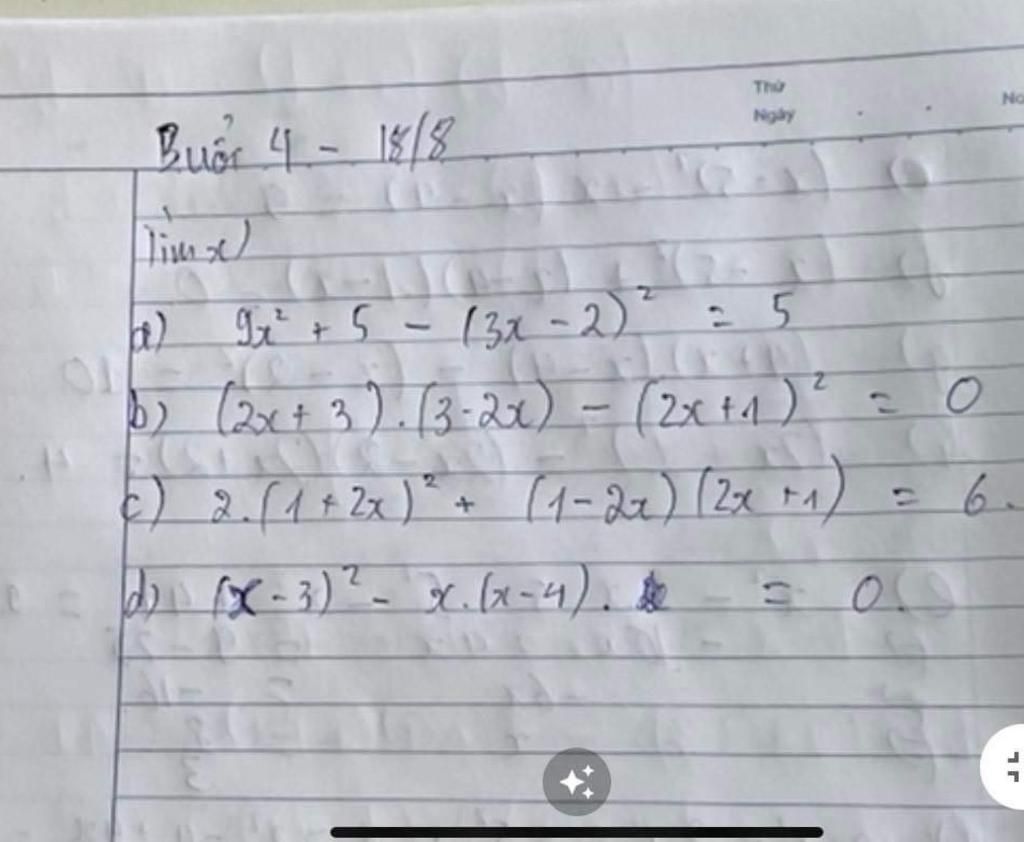 Thứ
Ngày
No
Buổi 4 - 18/8
Tìm x)
a) 9x² + 5 - (3x - 2)² = 5
b) (2x + 3).(3-2x) - (2x+1)² = 0
c) 2.(1 + 2x)² + (1-2x)(2x+1) = 6.
d) (x-3)² - x.(x-4). = 0.